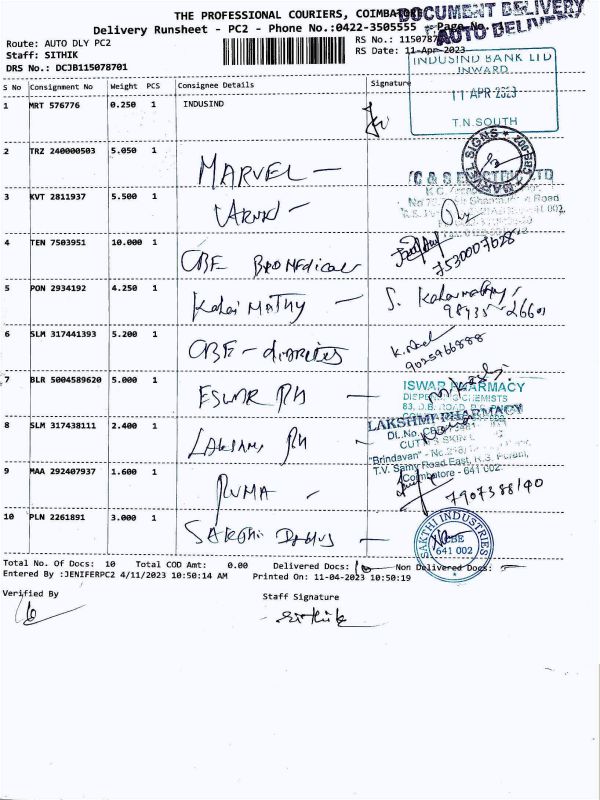 THE PROFESSIONAL COURIERS, COIMBATORE
DOCUMENT DELIVERY
Delivery Runsheet - PC2 - Phone No.:0422-3505555 Page No.
AUTO DELIVERY
Route: AUTO DLY PC2
RS No.: 1150787
Staff: SITHIK
RS Date: 11-Apr-2023
DRS No.: DCJB115078701
S No Consignment No Weight PCS Consignee Details Signature
INDUSIND BANK LTD
INWARD
11 APR 2023
T.N.SOUTH
1 MRT 576776 0.250 1 INDUSIND
2 TRZ 240000503 5.050 1 MARVEL -
MARVEL SIGNS * CBE-002
C & S ELECTRIC LTD
3 KVT 2811937 5.500 1
4 TEN 7503951 10.000 1 CBE BIOMedical
7530007628
5 PON 2934192 4.250 1 Kalai MATHY - S. Kalaimathy
98435-26601
6 SLM 317441393 5.200 1 CBE - diabetes
9025966888
7 BLR 5004589620 5.000 1 ESWAR PH -
ISWAR PHARMACY
CHEMISTS
8 SLM 317438111 2.400 1 LAKSHMI PH
LAKSHMI PHARMACY
"Brindavan" - No.
T.V. Samy Road East, R.S. Puram,
Coimbatore - 641 002.
9 MAA 292407937 1.600 1 RUMA -
7907388190
10 PLN 2261891 3.000 1 SAKTHI -
SAKTHI INDUSTRIES
CBE
641 002
Total No. Of Docs: 10 Total COD Amt: 0.00 Delivered Docs: 10 Non Delivered Docs: -
Entered By :JENIFERPC2 4/11/2023 10:50:14 AM Printed On: 11-04-2023 10:50:19
Verified By Staff Signature
Sithik